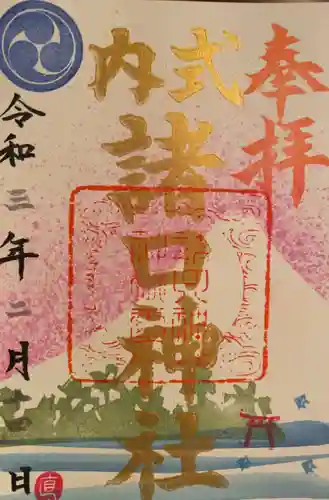 奉拝
式内
諸口神社
令和三年二月廿四日